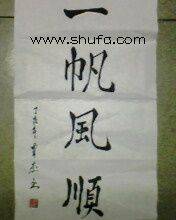 一帆風順
www.shufa.com
丁亥年